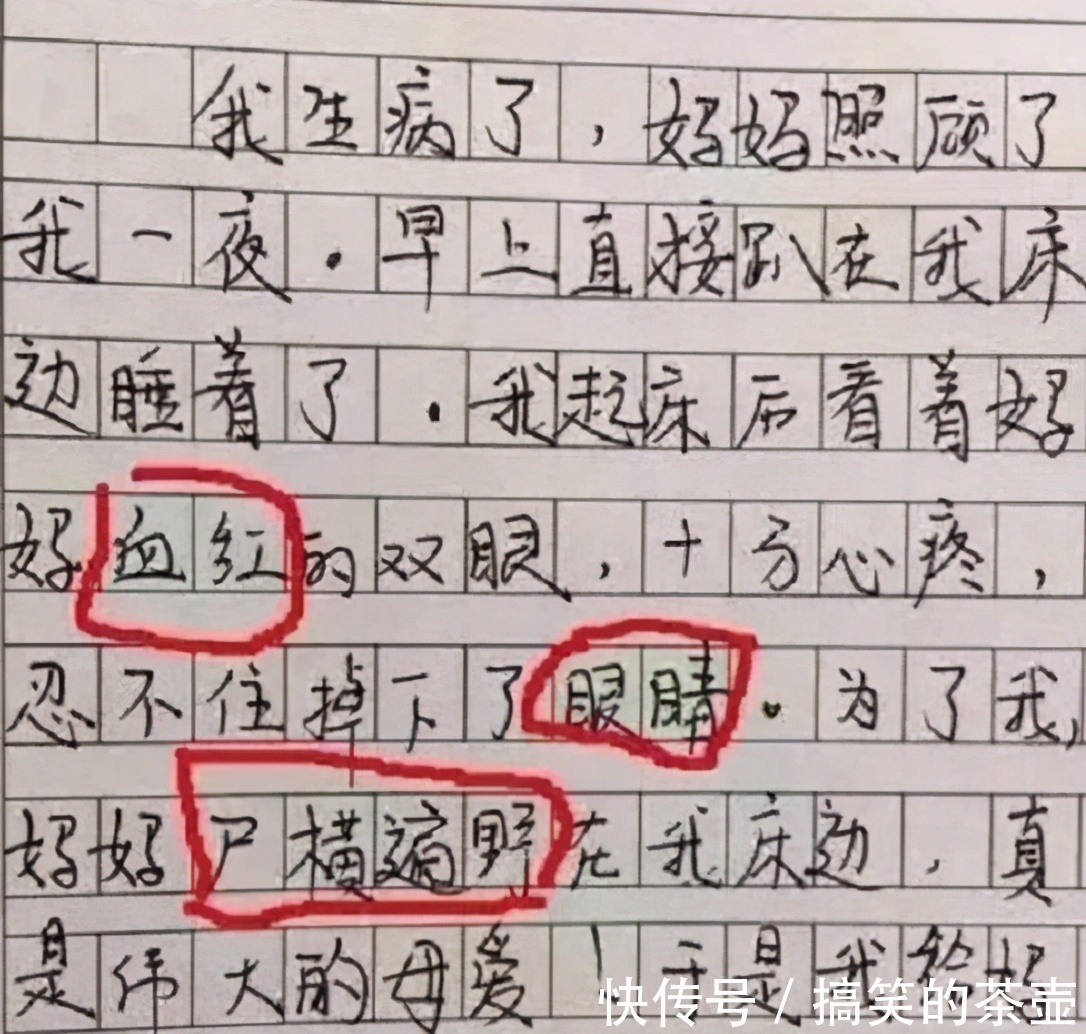 我生病了,妈妈照顾了
我一夜.早上直接趴在我床
边睡着了.我起床后看着妈
妈血红的双眼,十分心疼,
忍不住掉下了眼睛.为了我,
妈妈尸横遍野在我床边,真
是伟大的母爱!于是我给妈
快传号/搞笑的茶壶